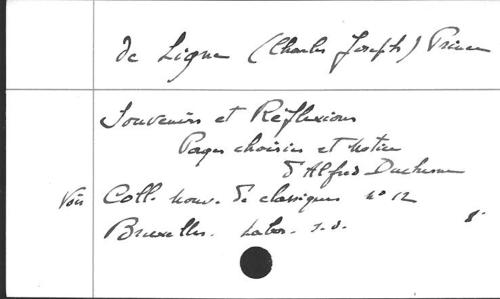 de Ligne (Charles Joseph) Prince
Souvenirs et Réflexions
Pages choisies et Notice
d'Alfred Duchesne
Voir Coll. nouv. de classiques n° 12
Bruxelles. Labor. s.d. 8°